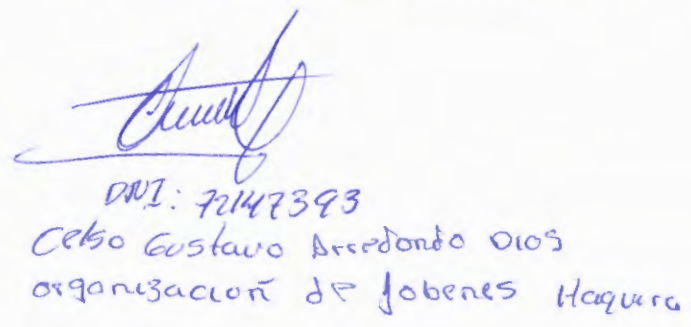 DNI: 72147393
Celso Gustavo Arredondo Dios
organizacion de Jobenes Haquira